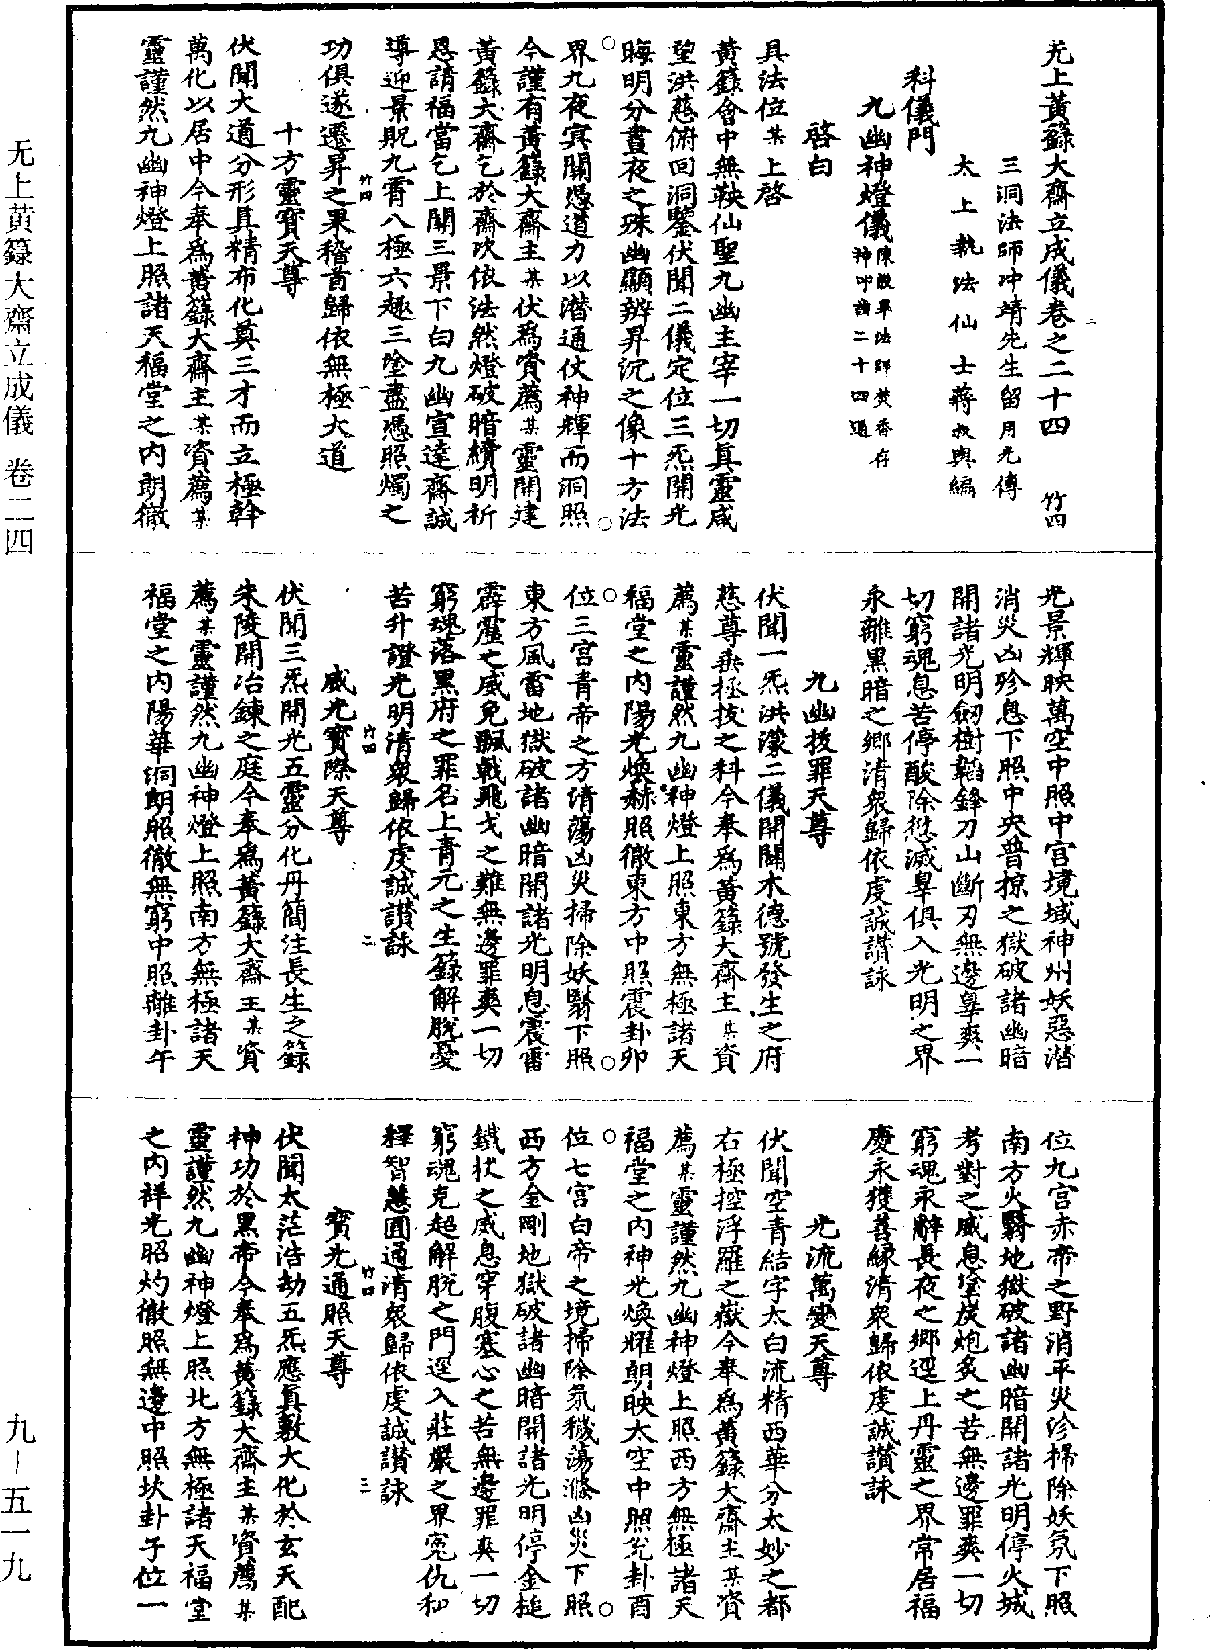 无上黃籙大齋立成儀卷之二十四 竹四
三洞法師冲靖先生留用光傳
太上執法仙士蔣叔輿編
科儀門
九幽神燈儀
啓白
具法位某上啓
黃籙會中無鞅仙聖九幽主宰一切眞靈咸
望洪慈俯回洞鑒伏聞二儀定位三炁開光
晦明分晝夜之殊幽顯辨昇沉之像十方法
界九夜冥關憑道力以潛通仗神輝而洞照
今謹有黃籙大齋主某伏爲資薦某靈開建
黃籙大齋乞於齋次依法然燈破暗續明祈
恩請福當乞上聞三景下曰九幽宣達齋誠
導迎景貺九霄八極六趣三塗盡憑照燭之
功俱遂遷昇之果稽首歸依無極大道
十方靈寶天尊
伏聞大道分形具精布化奠三才而立極幹
萬化以居中今奉爲黃籙大齋主某資薦某
靈謹然九幽神燈上照諸天福堂之內朗徹
光景輝映萬空中照中宮境域神州妖惡潛
消災凶殄息下照中央普掠之獄破諸幽暗
開諸光明劒樹韜鋒刀山斷刃無邊辠爽一
切窮魂息苦停酸除愆滅辠俱入光明之界
永離黑暗之鄉清衆歸依虔誠讃詠
九幽拔罪天尊
伏聞一炁洪濛二儀開闢木德號發生之府
慈尊垂極拔之科今奉爲黃籙大齋主某資
薦某靈謹然九幽神燈上照東方無極諸天
福堂之內陽光煥赫照徹東方中照震卦卯
位三宮青帝之方清蕩凶災掃除妖翳下照
東方風雷地獄破諸幽暗開諸光明息震雷
霹靂之威免飄戟飛戈之難無邊罪爽一切
窮魂落黑府之罪名上青元之生籙解脫憂
苦升證光明清衆歸依虔誠讃詠
威光寶際天尊
伏聞三炁開光五靈分化丹簡注長生之籙
朱陵開冶鍊之庭今奉爲黃籙大齋主某資
薦某靈謹然九幽神燈上照南方無極諸天
福堂之內陽華洞朗照徹無窮中照離卦午
位九宮赤帝之野消平災沴掃除妖氛下照
南方火翳地獄破諸幽暗開諸光明停火城
考對之威息塗炭炮炙之苦無邊罪爽一切
窮魂永辭長夜之鄉逕上丹靈之界常居福
慶永獲善緣清衆歸依虔誠讃詠
光流萬變天尊
伏聞空青結字太白流精西華分太妙之都
右極控浮羅之嶽今奉爲黃籙大齋主某資
薦某靈謹然九幽神燈上照西方無極諸天
福堂之內神光煥耀朗映太空中照兌卦酉
位七宮白帝之境掃除氛穢蕩滌凶災下照
西方金剛地獄破諸幽暗開諸光明停金槌
鐵杖之威息穿腹塞心之苦無邊罪爽一切
窮魂克超解脫之門逕入莊嚴之界冤仇和
釋智慧圓通清衆歸依虔誠讃詠
寶光通照天尊
伏聞太茫浩劫五炁應真敷大化於玄天配
神功於黑帝今奉爲黃籙大齋主某資薦某
靈謹然九幽神燈上照北方無極諸天福堂
之內祥光昭灼徹照無邊中照坎卦子位一
无上黃籙大齋立成儀 卷二四
九—五一九